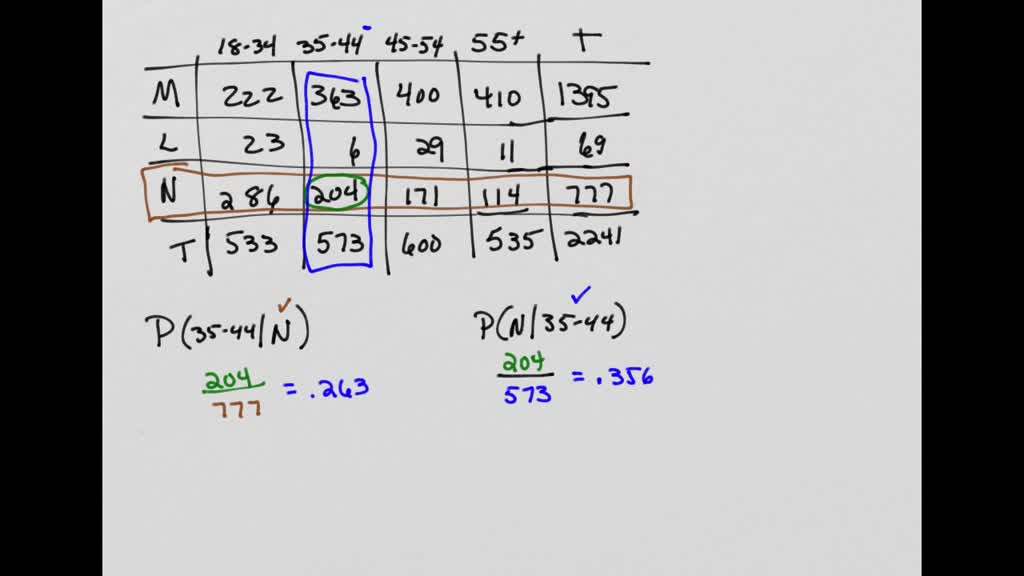 18-34 35-44 45-54 55+ T
M 222 363 400 410 1395
L 23 6 29 11 69
N 286 204 171 114 777
T 533 573 600 535 2241
P(35-44/N) ✓ P(N/35-44) ✓
204/777 = .263 204/573 = .356